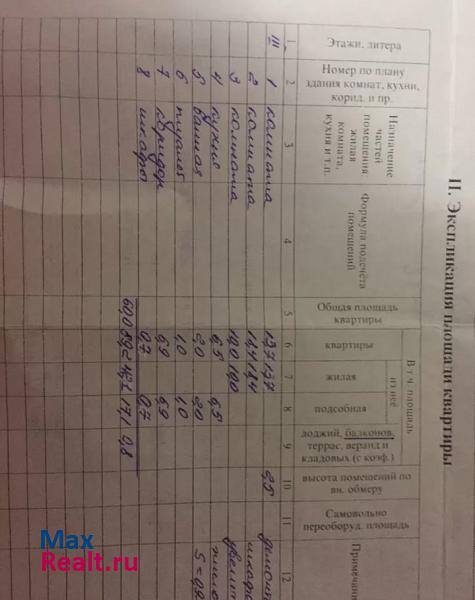 II. Экспликация площади квартиры
Этажи, литера
Номер по плану здания комнат, кухни, корид. и пр.
Назначение частей помещения жилая комната, кухня и т.п.
Формула подсчёта помещений
Общая площадь квартиры
В т.ч. площадь
квартиры
из неё
жилая
подсобная
лоджий, балконов, террас, веранд и кладовых (с коэф.)
высота помещений по вн. обмеру
Самовольно переоборуд. площадь
1 2 3 4 5 6 7 8 9 10 11 12
III 1 комната 13,7 13,7 2,5
2 комната
3 комната
4 кухня 6,5 6,5
5 ванная 2,0 2,0
6 туалет 1,0 1,0
7 коридор 6,9 6,9
8 шкаф 0,7 0,7
60,0 59,2 42,1 17,1 0,8
Max
Realt.ru